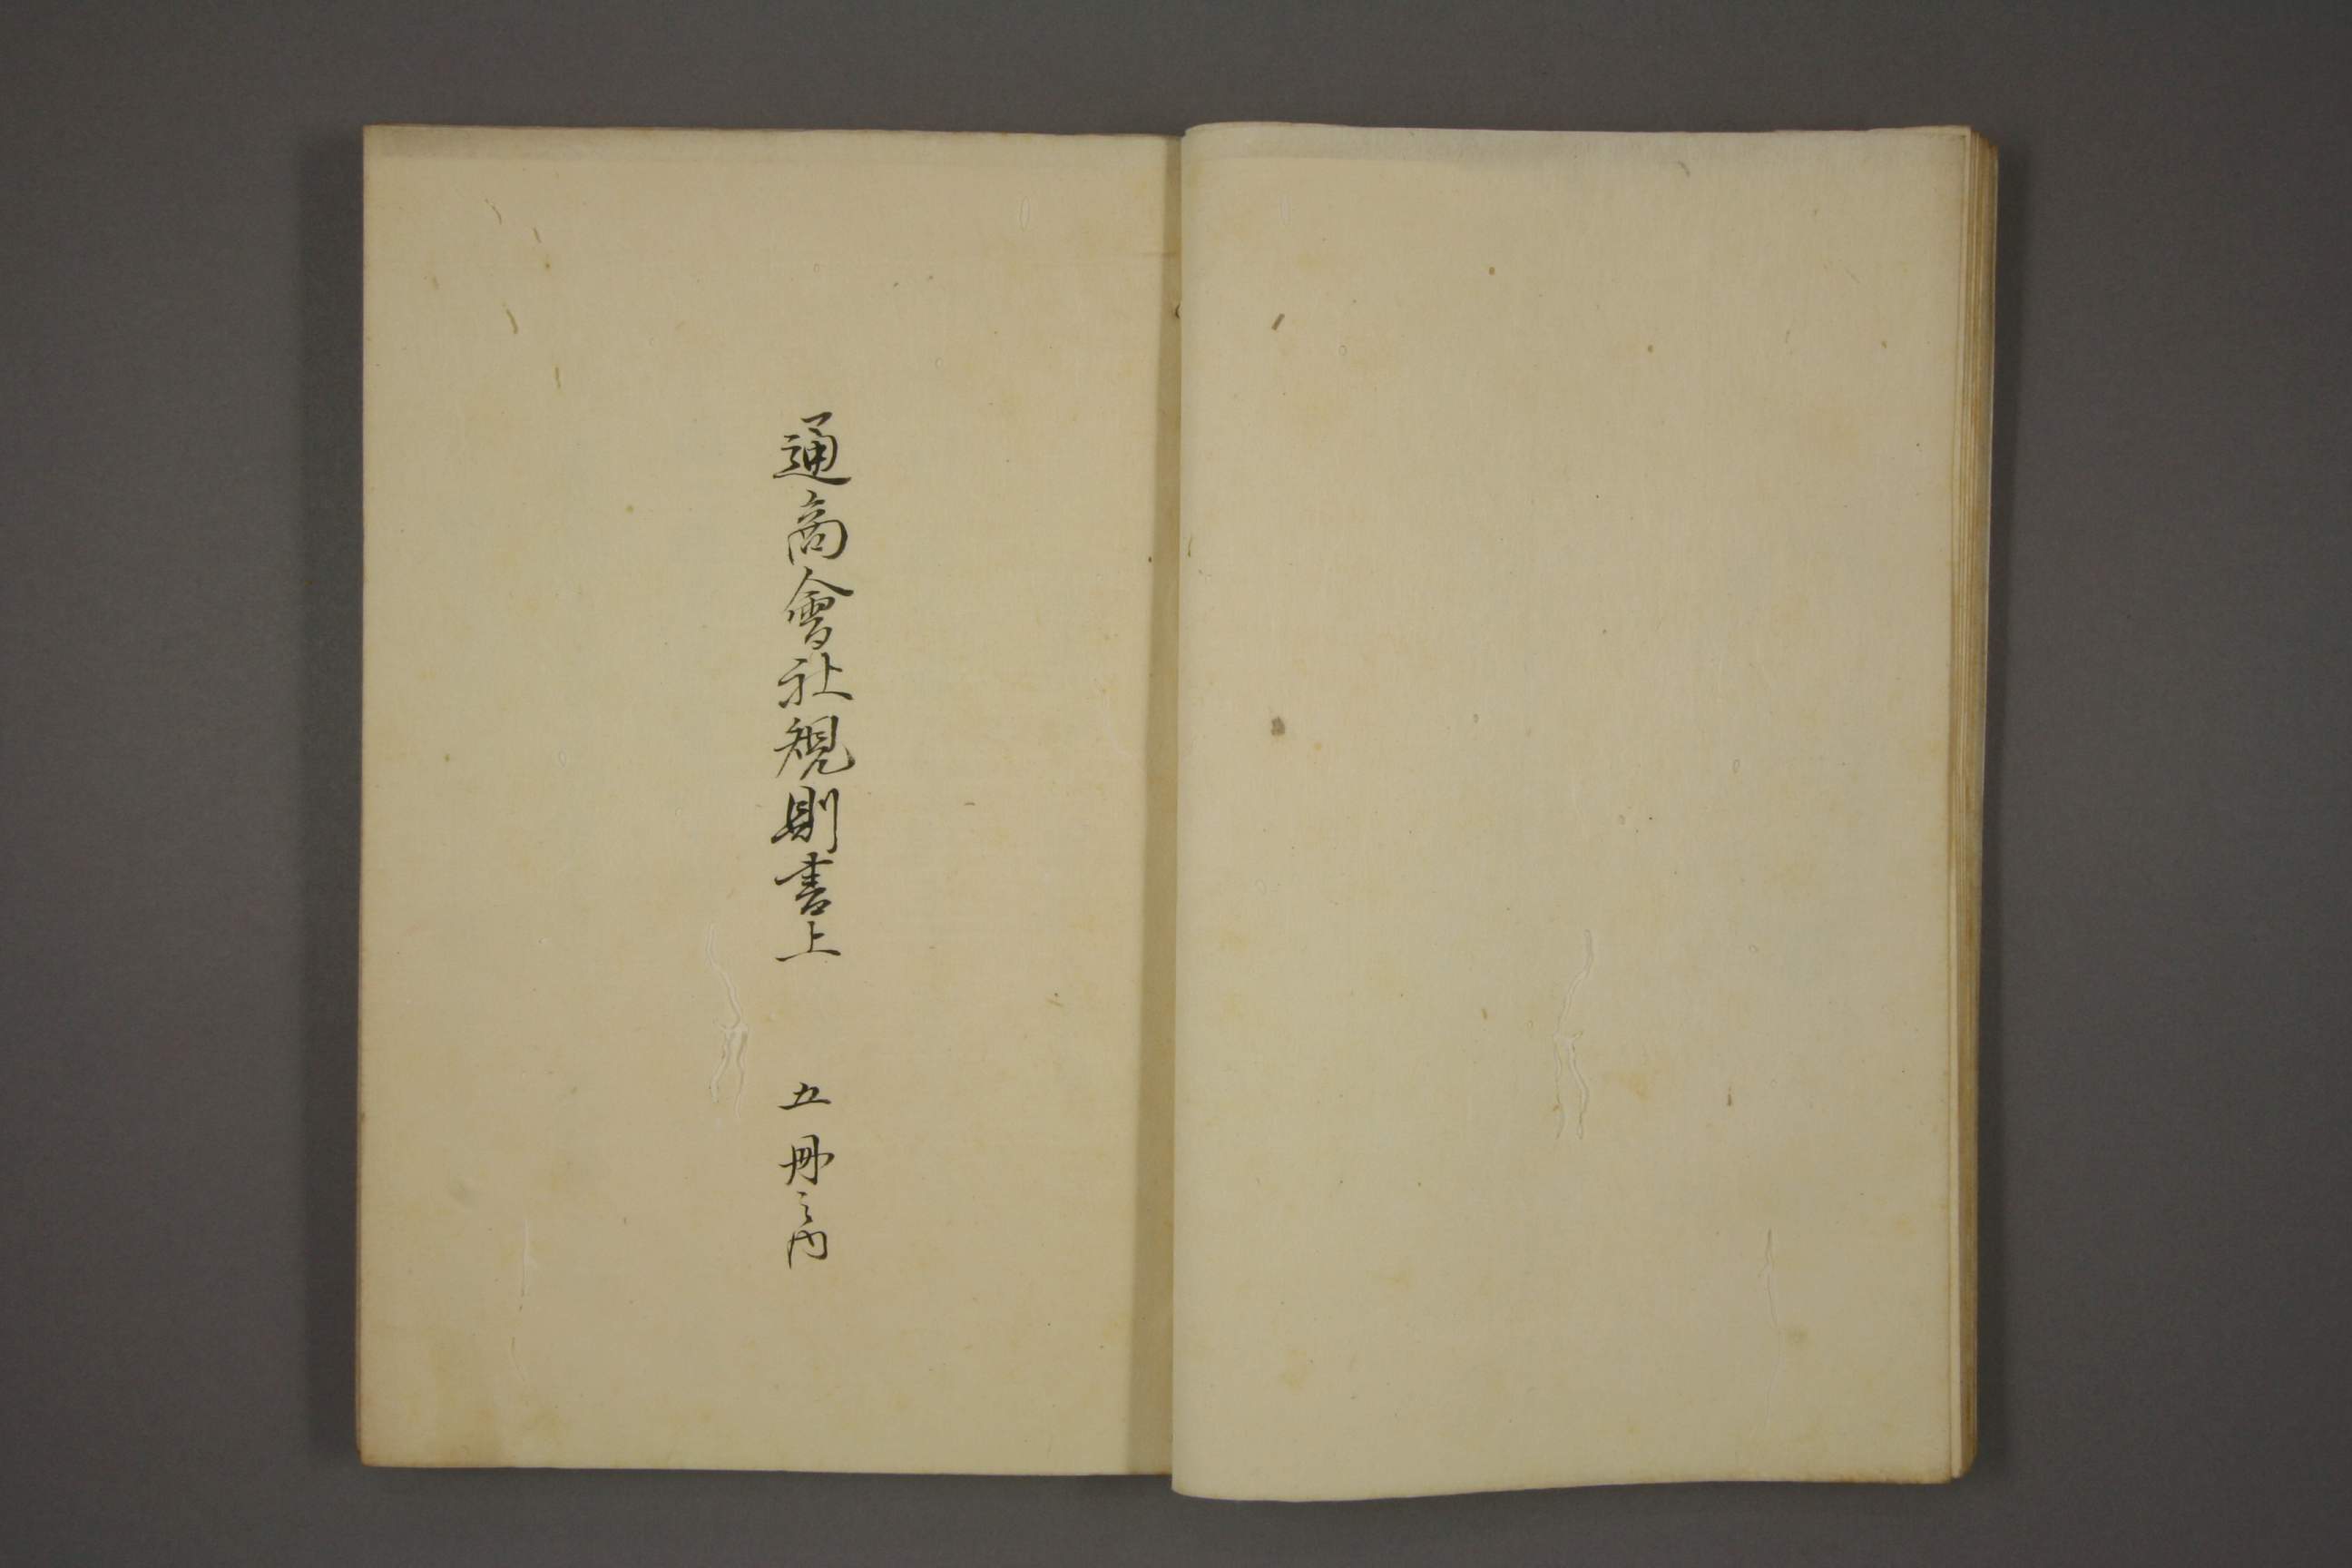 通商會社規則書上　五冊之内